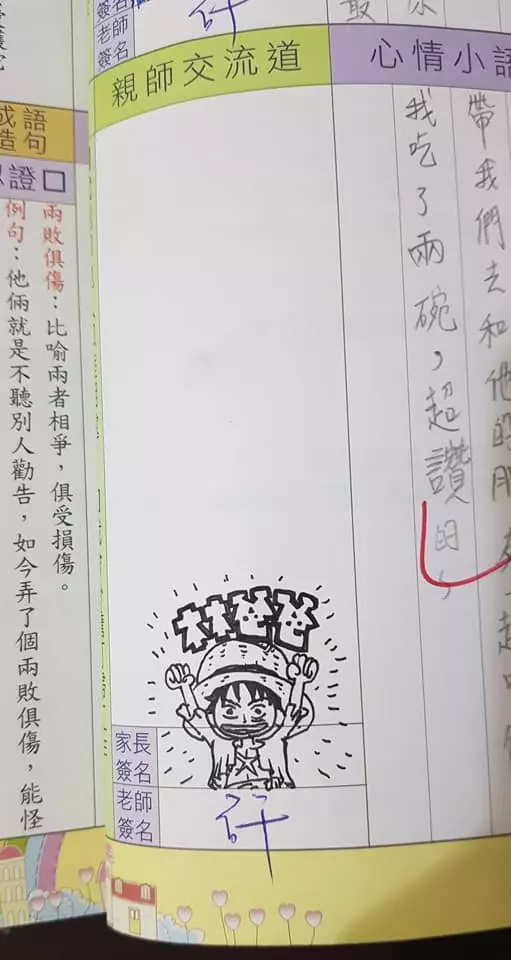 簽名
老師
簽名
許
最
親師交流道
心情小語
帶我們去和他的朋友一起吃
我吃了兩碗，超讚的，
林爸爸
家長
簽名
老師
簽名
許
成語
造句
認證口
兩敗俱傷：比喻兩者相爭，俱受損傷。
例句：他倆就是不聽別人勸告，如今弄了個兩敗俱傷，能怪